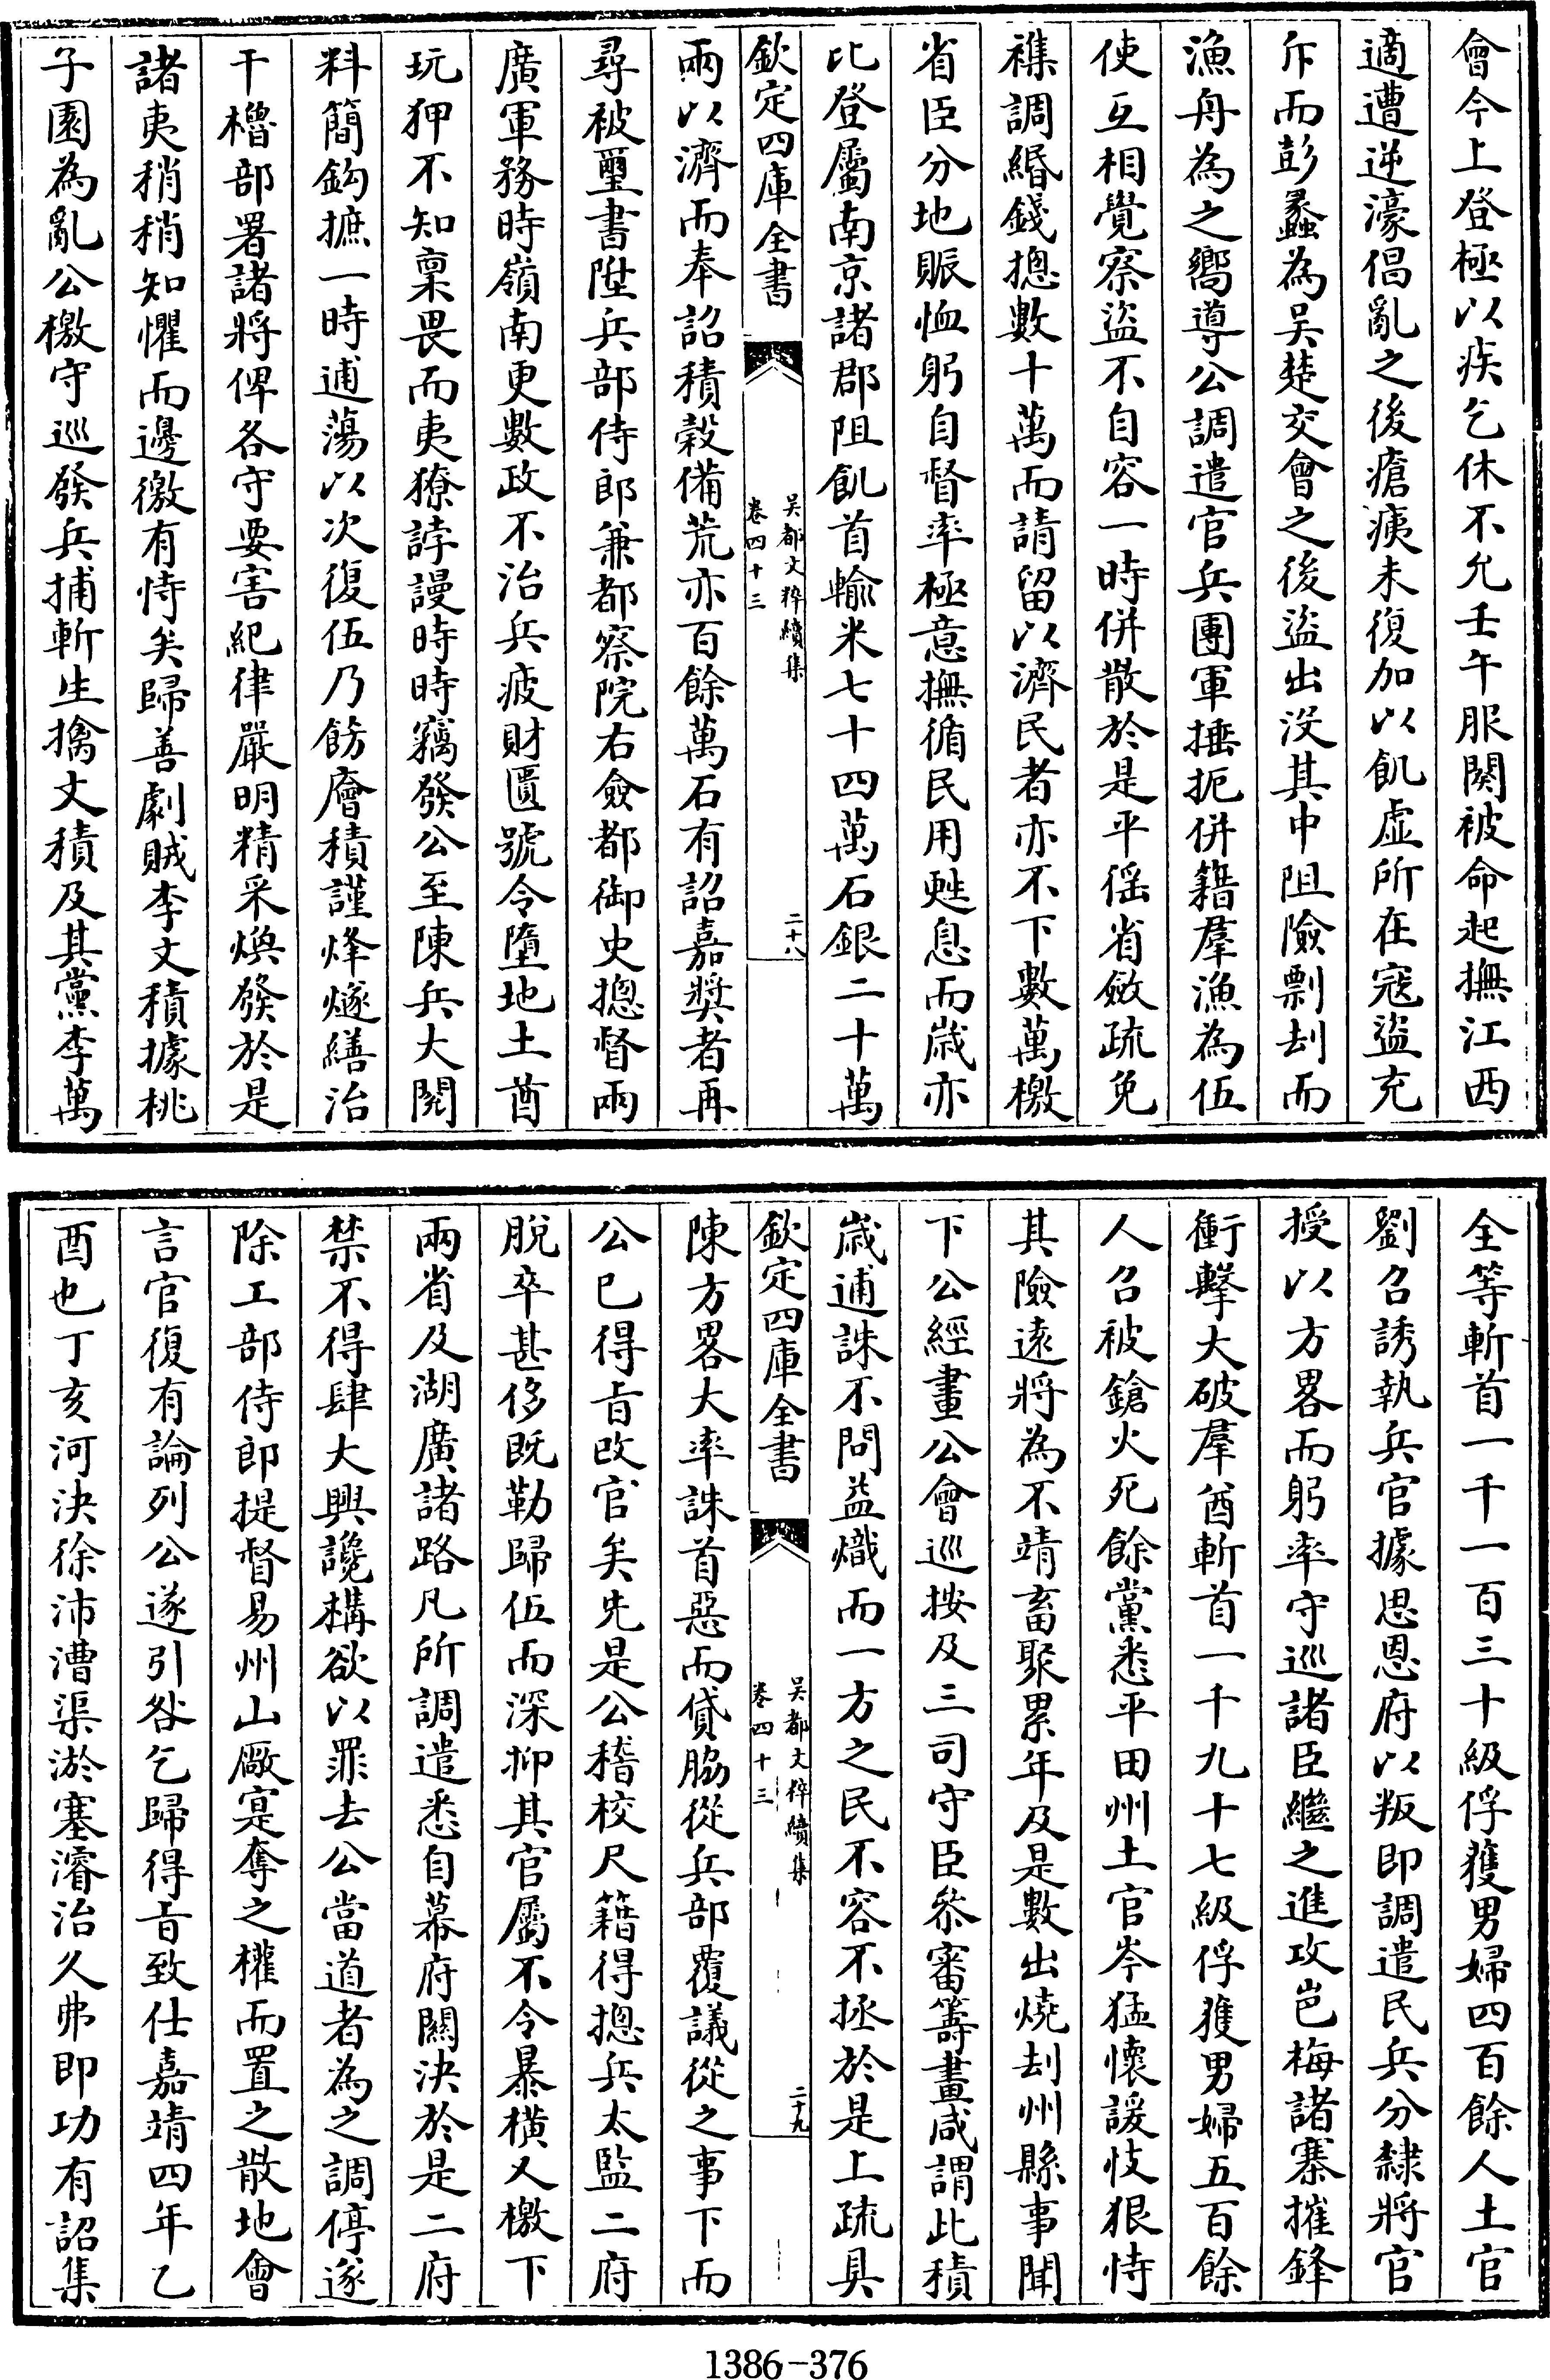 會今上登極以疾乞休不允壬午服闋被命起撫江西
適遭逆濠倡亂之後瘡痍未復加以飢虛所在寇盜充
斥而彭蠡為吳楚交會之後盜出没其中阻險剽刦而
漁舟為之嚮導公調遣官兵團軍捶扼併籍羣漁為伍
使互相覺察盜不自容一時併散於是平徭省斂疏免
襍調緡錢摠數十萬而請留以濟民者亦不下數萬檄
省臣分地賑恤躬自督率極意撫循民用甦息而歲亦
比登屬南京諸郡阻飢首輸米七十四萬石銀二十萬
欽定四庫全書
吳都文粹續集
卷四十三
二十八
兩以濟而奉詔積穀備荒亦百餘萬石有詔嘉奬者再
尋被璽書陞兵部侍郎兼都察院右僉都御史摠督兩
廣軍務時嶺南更數政不治兵疲財匱號令墮地土酋
玩狎不知稟畏而夷獠誖謾時時竊發公至陳兵大閱
料簡鈎摭一時逋蕩以次復伍乃餝廥積謹烽燧繕治
干櫓部署諸將俾各守要害紀律嚴明精采煥發於是
諸夷稍稍知懼而邊徼有恃矣歸善劇賊李文積據桃
子園為亂公檄守巡發兵捕斬生擒文積及其黨李萬
全等斬首一千一百三十級俘獲男婦四百餘人土官
劉召誘執兵官據思恩府以叛即調遣民兵分隸將官
授以方畧而躬率守巡諸臣繼之進攻岜梅諸寨摧鋒
衝擊大破羣酋斬首一千九十七級俘獲男婦五百餘
人召被鎗火死餘黨悉平田州土官岑猛懷諼忮狠恃
其險遠將為不靖畜聚累年及是數出燒刦州縣事聞
下公經畫公會巡按及三司守臣叅審籌畫咸謂此積
歲逋誅不問益熾而一方之民不容不拯於是上疏具
欽定四庫全書
吳都文粹續集
卷四十三
二十九
陳方畧大率誅首惡而貸脇從兵部覆議從之事下而
公已得旨改官矣先是公稽校尺籍得摠兵太監二府
脫卒甚侈既勒歸伍而深抑其官屬不令暴橫又檄下
兩省及湖廣諸路凡所調遣悉自幕府關決於是二府
禁不得肆大興讒構欲以罪去公當道者為之調停遂
除工部侍郎提督易州山廠寔奪之權而置之散地會
言官復有論列公遂引咎乞歸得旨致仕嘉靖四年乙
酉也丁亥河決徐沛漕渠淤塞濬治久弗即功有詔集
1386-376